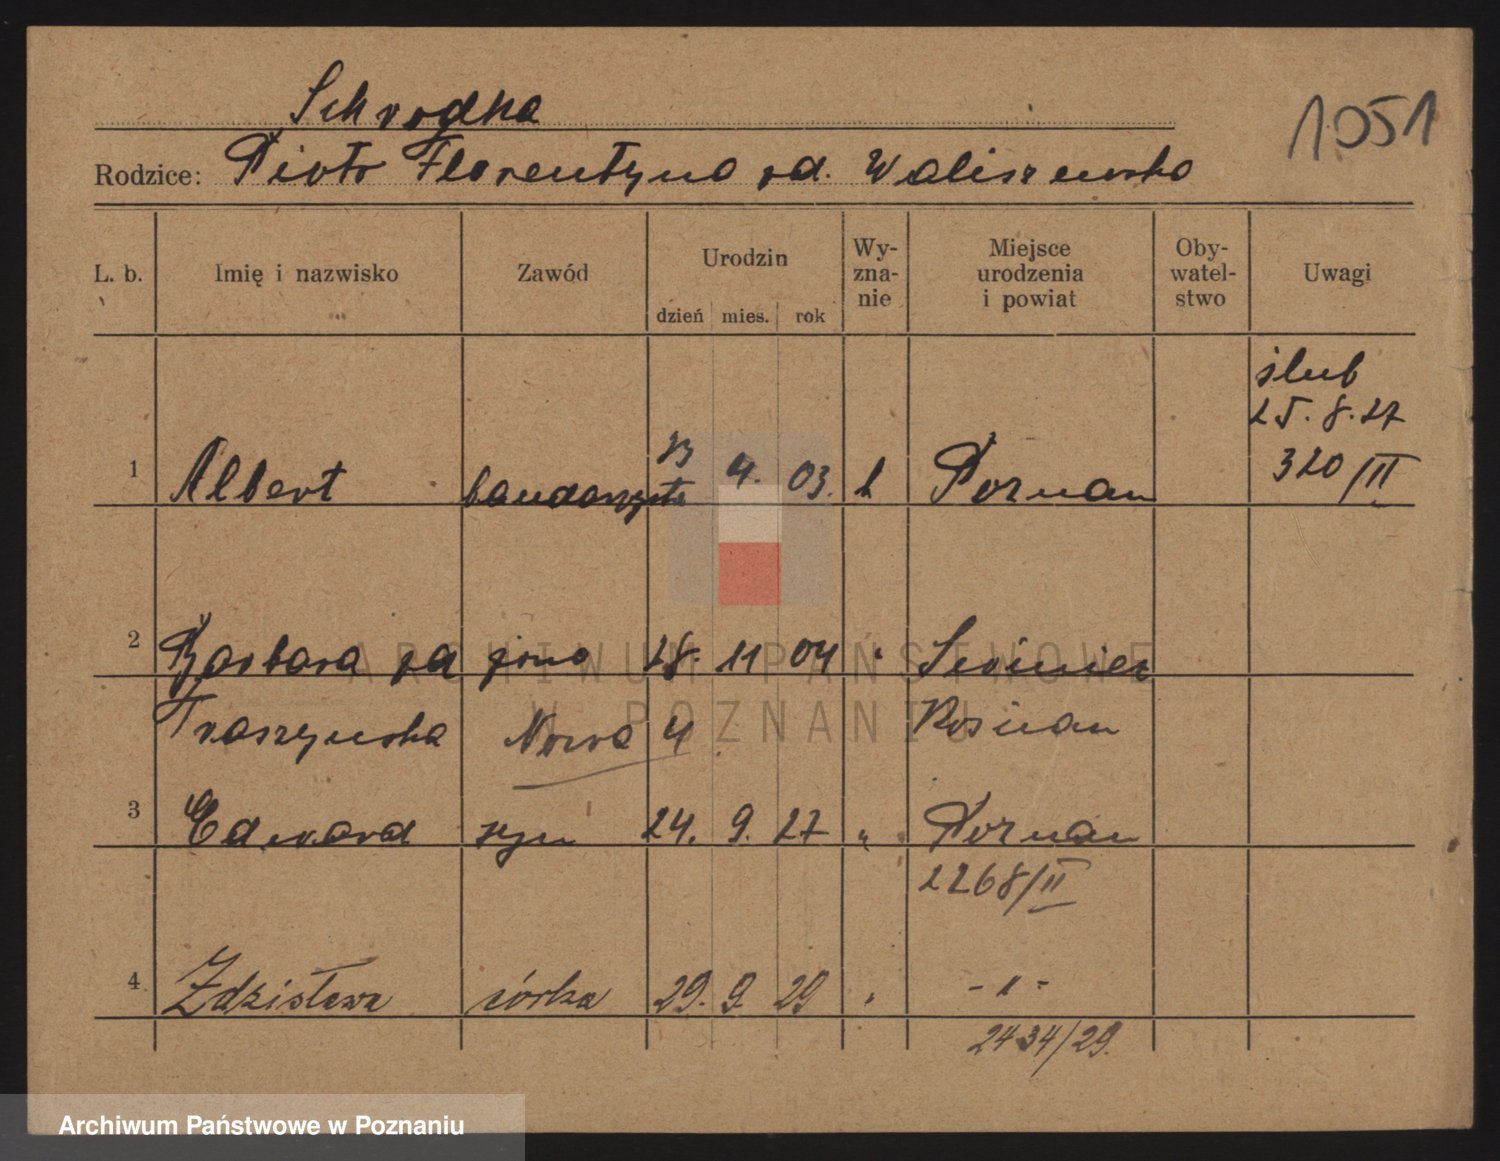 Schrodka
1051
Rodzice: Piotr Florentyna od. Waliszewska
L. b. Imię i nazwisko Zawód Urodzin dzień mies. rok Wy-zna-nie Miejsce urodzenia i powiat Oby-watel-stwo Uwagi
ślub
25. 8. 27
320/III
1 Albert 4. 03. k Poznan
2 Barbara od żona 28. 11 04 "
Traszynska Nowa 4 Poznan
3 Edward syn 24. 9. 27 " Poznan
2268/II
4 Zdzisława córka 29. 9. 29 " - " -
2434/29.
ARCHIWUM PAŃSTWOWE
W POZNANIU
Archiwum Państwowe w Poznaniu